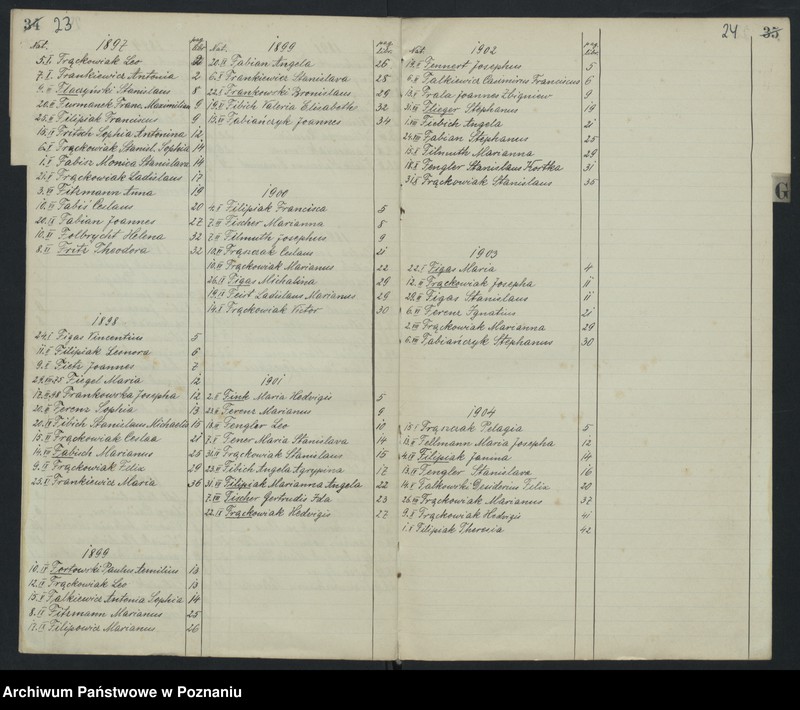 34 23
Nat. 1897 pag. libr.
5.I. Frąckowiak Leo 2
7.I. Frankiewicz Antonia 2
9. Tłaczyński Stanislaus 8
20. Furmanek Franc. Maximilian 9
25. Filipiak Franciscus 9
18. Fritsch Sophia Antonina 12
6. Frąckowiak Staniel. Sophia 14
1. Fabisz Monica Stanislava 14
26. Frąckowiak Ladislaus 17
3. Fitzmann Anna 19
10. Fabiś Ceslaus 20
20. Fabian Joannes 27
10. Folbrycht Helena 32
8. Fritz Theodora 32
1898
24.I Figas Vincentius 5
11. Filipiak Leonora 6
9. Fietz Joannes 7
29. Fiegel Maria 12
17. Frankowska Josepha 12
20. Ferenz Sophia 13
20. Fibich Stanislaus Michaelis 15
15. Frąckowiak Ceslaa 21
14. Fabich Marianus 25
9. Frąckowiak Felix 29
23. Frankiewicz Maria 36
1899
10. Fortowski Paulus Aemilius 13
12. Frąckowiak Leo 13
15. Falkiewicz Antonia Sophia 14
8. Fitzmann Marianus 25
17. Filipowicz Marianus 26
Nat. 1899 pag. libr.
20. Fabian Angela 26
6. Frankiewicz Stanislava 25
22. Frankowski Bronislaus 29
19. Fibich Valeria Elisabeth 32
15. Fabiańczyk Joannes 34
1900
4. Filipiak Francisca 5
7. Fischer Marianna 8
7. Filmuth Josephus 9
10. Frąszczak Ceslaus 21
10. Frąckowiak Marianus 22
26. Figas Michalina 29
19. Feist Ladislaus Marianus 29
14. Frąckowiak Victor 30
1901
2. Fink Maria Hedvigis 5
23. Ferenz Marianus 9
13. Fengler Leo 10
7. Fener Maria Stanislava 14
31. Frąckowiak Stanislaus 15
23. Fibich Angela Agrypina 17
31. Filipiak Marianna Angela 22
7. Fischer Gertrudis Ida 23
22. Frąckowiak Hedvigis 27
24 35
Nat. 1902 pag. libr.
19. Fennert Josephus 5
6. Falkiewicz Casimirus Franciscus 6
13. Frala Joannes Zbigniew 9
31. Flieger Stephanus 19
1. Fiebich Angela 21
24. Fabian Stephanus 25
15. Filmuth Marianna 29
18. Fengler Stanislaus Kostka 31
31. Frąckowiak Stanislaus 35
1903
22.I Figas Maria 4
12. Frąckowiak Josepha 11
29. Figas Stanislaus 11
6. Ferenz Ignatius 21
2. Frąckowiak Marianna 29
6. Fabiańczyk Stephanus 30
1904
15.I Frąszczak Pelagia 5
13. Fellmann Maria Josepha 12
4. Filipiak Janina 14
13. Fengler Stanislava 16
14. Falkowski Desiderius Felix 20
26. Frąckowiak Marianus 37
9. Frąckowiak Hedvigis 41
1. Filipiak Theresia 42
G
Archiwum Państwowe w Poznaniu